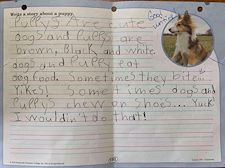 Write a story about a puppy.
Good
Puppys Are cute
dogs and Puppys are
brown, Black and white
dogs and Puppy eat
dog food. Sometimes they bite...
Yikes! Sometimes dogs and
Puppys chew on shoes... Yuck
I wouldn't do that!